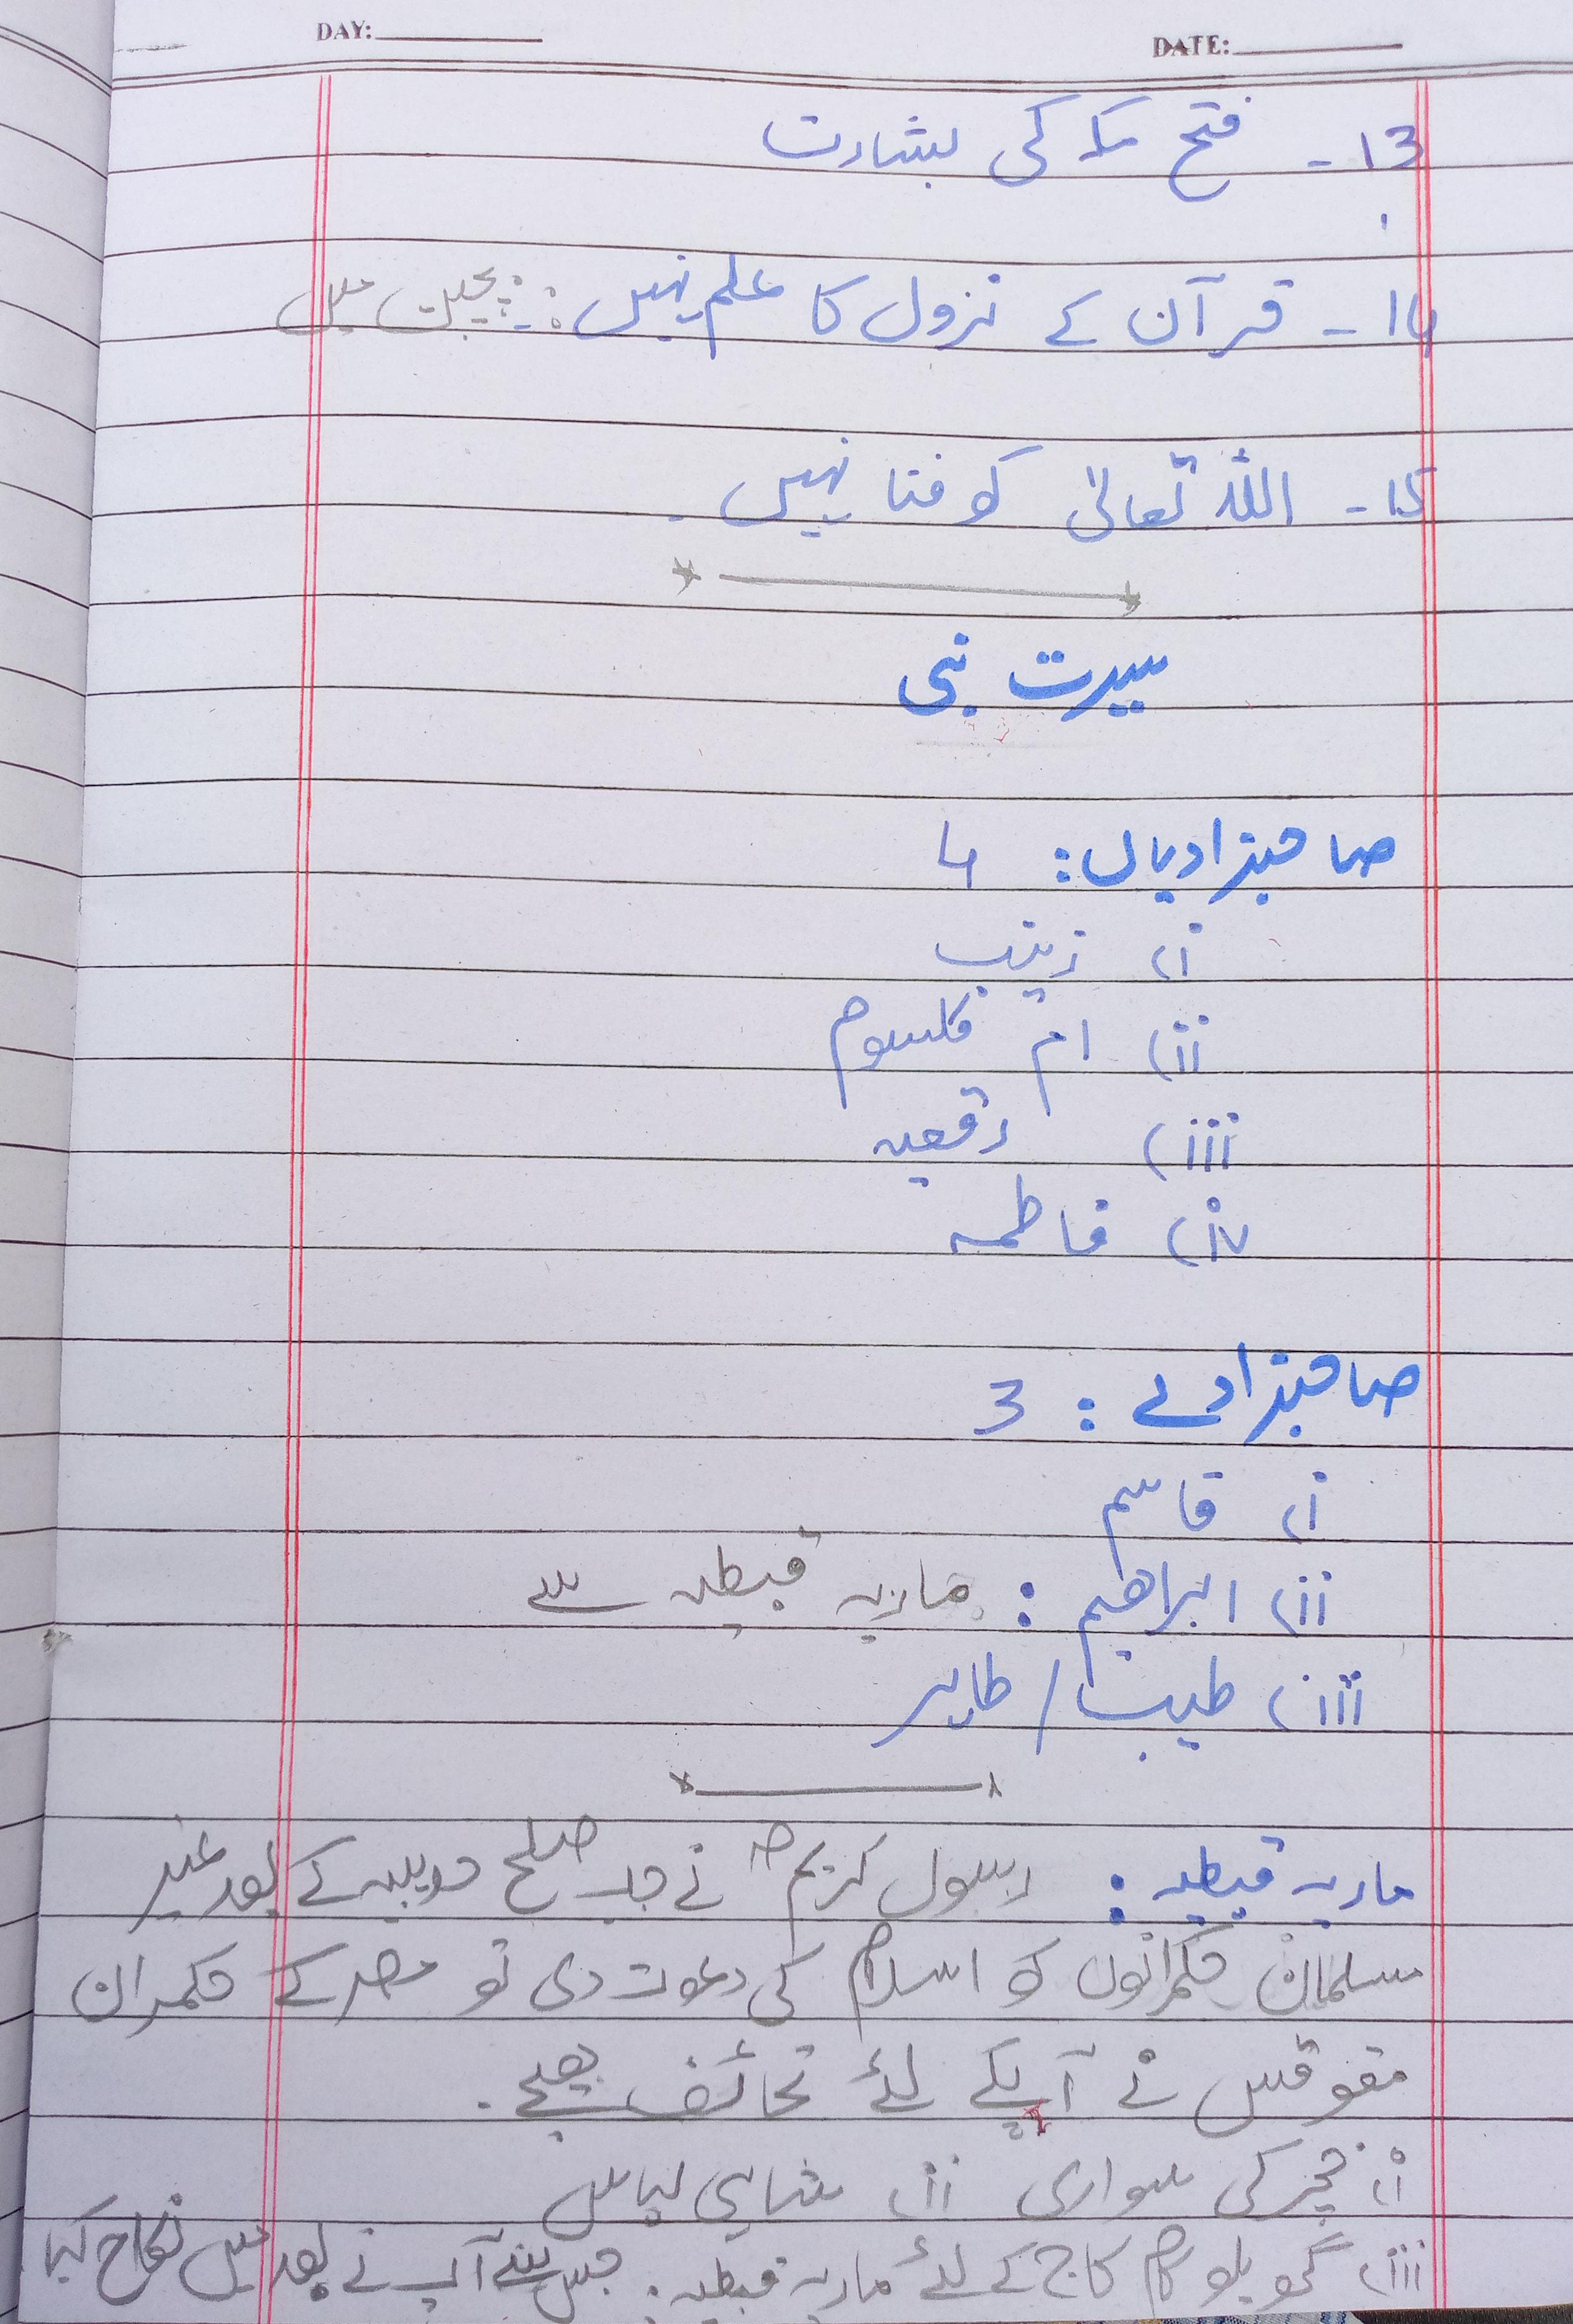 DAY: DATE:
13- فتح مکہ کی بشارت
14- قرآن کے نزول کا علم نہیں : بچپن میں
15- اللہ تعالیٰ کو فنا نہیں۔
سیرت نبی
صاحبزادیاں: 4
i) زینب
ii) ام کلسوم
iii) رقعیہ
iv) فاطمہ
صاحبزادے: 3
i) قاسم
ii) ابراھیم : ماریہ قبطیہ سے
iii) طیب / طاہر
ماریہ قبطیہ: رسول کریمؐ نے جب صلح حدیبیہ کے بعد غیر
مسلمان حکمرانوں کو اسلام کی دعوت دی تو مصر کے حکمران
مقوقس نے آپکے لئے تحائف بھیجے۔
i) خچر کی سواری ii) شاہی لباس
iii) گھریلو کام کاج کے لئے ماریہ قبطیہ۔ جس سے آپ نے بعد میں نکاح کیا